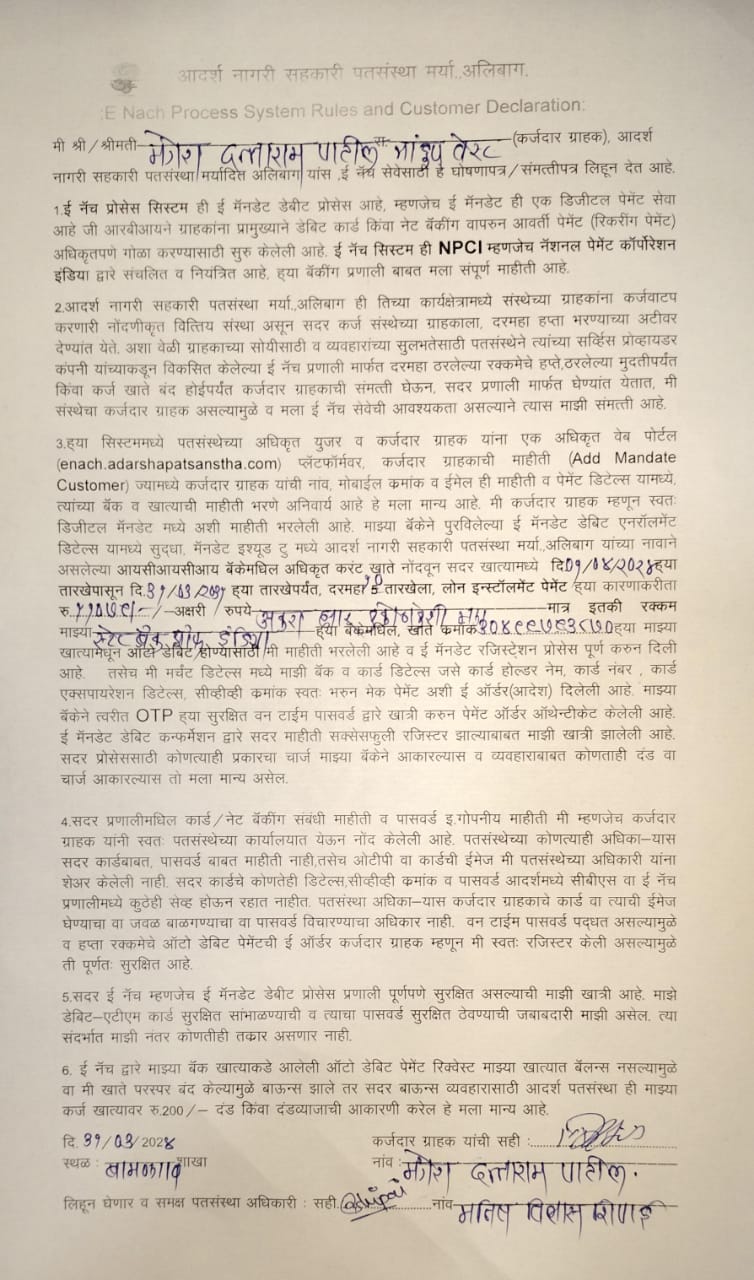 आदर्श नागरी सहकारी पतसंस्था मर्या.,अलिबाग.
:E Nach Process System Rules and Customer Declaration:
मी श्री/श्रीमती दत्ताराम पाटील (कर्जदार ग्राहक), आदर्श
नागरी सहकारी पतसंस्था मर्यादित अलिबाग यांस ,ई नॅच सेवेसाठी हे घोषणापत्र/संमत्तीपत्र लिहून देत आहे.
1.ई नॅच प्रोसेस सिस्टम ही ई मॅनडेट डेबीट प्रोसेस आहे, म्हणजेच ई मॅनडेट ही एक डिजीटल पेमेंट सेवा
आहे जी आरबीआयने ग्राहकांना प्रामुख्याने डेबिट कार्ड किंवा नेट बॅकींग वापरुन आवर्ती पेमेंट (रिकरींग पेमेंट)
अधिकृतपणे गोळा करण्यासाठी सुरु केलेली आहे. ई नॅच सिस्टम ही NPCI म्हणजेच नॅशनल पेमेंट कॉर्पोरेशन
इंडिया द्वारे संचलित व नियंत्रित आहे, ह्या बॅकींग प्रणाली बाबत मला संपूर्ण माहीती आहे.
2.आदर्श नागरी सहकारी पतसंस्था मर्या.,अलिबाग ही तिच्या कार्यक्षेत्रामध्ये संस्थेच्या ग्राहकांना कर्जवाटप
करणारी नोंदणीकृत वित्तिय संस्था असून सदर कर्ज संस्थेच्या ग्राहकाला, दरमहा हप्ता भरण्याच्या अटीवर
देण्यांत येते. अशा वेळी ग्राहकाच्या सोयीसाठी व व्यवहारांच्या सुलभतेसाठी पतसंस्थेने त्यांच्या सर्व्हिस प्रोव्हायडर
कंपनी यांच्याकडून विकसित केलेल्या ई नॅच प्रणाली मार्फत दरमहा ठरलेल्या रक्कमेचे हप्ते,ठरलेल्या मुदतीपर्यंत
किंवा कर्ज खाते बंद होईपर्यंत कर्जदार ग्राहकाची संमत्ती घेऊन, सदर प्रणाली मार्फत घेण्यांत येतात, मी
संस्थेचा कर्जदार ग्राहक असल्यामुळे व मला ई नॅच सेवेची आवश्यकता असल्याने त्यास माझी संमत्ती आहे.
3.ह्या सिस्टममध्ये पतसंस्थेच्या अधिकृत युजर व कर्जदार ग्राहक यांना एक अधिकृत वेब पोर्टल
(enach.adarshapatsanstha.com) प्लॅटफॉर्मवर, कर्जदार ग्राहकाची माहीती (Add Mandate
Customer) ज्यामध्ये कर्जदार ग्राहक यांची नांव, मोबाईल क्रमांक व ईमेल ही माहीती व पेमेंट डिटेल्स यामध्ये,
त्यांच्या बॅक व खात्याची माहीती भरणे अनिवार्य आहे हे मला मान्य आहे. मी कर्जदार ग्राहक म्हणून स्वतः
डिजीटल मॅनडेट मध्ये अशी माहीती भरलेली आहे. माझ्या बॅकेने पुरविलेल्या ई मॅनडेट डेबिट एनरॉलमेंट
डिटेल्स यामध्ये सुद्धा, मॅनडेट इश्यूड टु मध्ये आदर्श नागरी सहकारी पतसंस्था मर्या.,अलिबाग यांच्या नावाने
असलेल्या आयसीआयसीआय बॅकेमधिल अधिकृत करंट खाते नोंदवून सदर खात्यामध्ये दि०१/०४/२०२४ह्या
तारखेपासून दि.३१/०३/ ह्या तारखेपर्यंत, दरमहा १० तारखेला, लोन इन्स्टॉलमेंट पेमेंट ह्या कारणाकरीता
रु. /-अक्षरी रुपये अकरा मात्र इतकी रक्कम
माझ्या स्टेट बँक ऑफ इंडिया ह्या बॅकेमधिल, खाते क्रमांक ह्या माझ्या
खात्यामधून ऑटो डेबिट होण्यासाठी मी माहीती भरलेली आहे व ई मॅनडेट रजिस्ट्रेशन प्रोसेस पूर्ण करुन दिली
आहे. तसेच मी मर्चंट डिटेल्स मध्ये माझी बॅक व कार्ड डिटेल्स जसे कार्ड होल्डर नेम, कार्ड नंबर , कार्ड
एक्सपायरेशन डिटेल्स, सीव्हीव्ही क्रमांक स्वतः भरुन मेक पेमेंट अशी ई ऑर्डर(आदेश) दिलेली आहे. माझ्या
बॅकेने त्वरीत OTP ह्या सुरक्षित वन टाईम पासवर्ड द्वारे खात्री करुन पेमेंट ऑर्डर ऑथेन्टीकेट केलेली आहे.
ई मॅनडेट डेबिट कन्फर्मेशन द्वारे सदर माहीती सक्सेसफुली रजिस्टर झाल्याबाबत माझी खात्री झालेली आहे.
सदर प्रोसेससाठी कोणत्याही प्रकारचा चार्ज माझ्या बॅकेने आकारल्यास व व्यवहाराबाबत कोणताही दंड वा
चार्ज आकारल्यास तो मला मान्य असेल.
4.सदर प्रणालीमधिल कार्ड/नेट बॅकींग संबंधी माहीती व पासवर्ड इ.गोपनीय माहीती मी म्हणजेच कर्जदार
ग्राहक यांनी स्वतः पतसंस्थेच्या कार्यालयात येऊन नोंद केलेली आहे. पतसंस्थेच्या कोणत्याही अधिका–यास
सदर कार्डबाबत, पासवर्ड बाबत माहीती नाही,तसेच ओटीपी वा कार्डची ईमेज मी पतसंस्थेच्या अधिकारी यांना
शेअर केलेली नाही. सदर कार्डचे कोणतेही डिटेल्स,सीव्हीव्ही क्रमांक व पासवर्ड आदर्शमध्ये सीबीएस वा ई नॅच
प्रणालीमध्ये कुठेही सेव्ह होऊन रहात नाहीत. पतसंस्था अधिका–यास कर्जदार ग्राहकाचे कार्ड वा त्याची ईमेज
घेण्याचा वा जवळ बाळगण्याचा वा पासवर्ड विचारण्याचा अधिकार नाही. वन टाईम पासवर्ड पद्धत असल्यामुळे
व हप्ता रक्कमेचे ऑटो डेबिट पेमेंटची ई ऑर्डर कर्जदार ग्राहक म्हणून मी स्वतः रजिस्टर केली असल्यामुळे
ती पूर्णतः सुरक्षित आहे.
5.सदर ई नॅच म्हणजेच ई मॅनडेट डेबीट प्रोसेस प्रणाली पूर्णपणे सुरक्षित असल्याची माझी खात्री आहे. माझे
डेबिट–एटीएम कार्ड सुरक्षित सांभाळण्याची व त्याचा पासवर्ड सुरक्षित ठेवण्याची जबाबदारी माझी असेल. त्या
संदर्भात माझी नंतर कोणतीही तक्रार असणार नाही.
6. ई नॅच द्वारे माझ्या बॅक खात्याकडे आलेली ऑटो डेबिट पेमेंट रिक्वेस्ट माझ्या खात्यात बॅलन्स नसल्यामुळे
वा मी खाते परस्पर बंद केल्यामुळे बाऊन्स झाले तर सदर बाऊन्स व्यवहारासाठी आदर्श पतसंस्था ही माझ्या
कर्ज खात्यावर रु.200/– दंड किंवा दंडव्याजाची आकारणी करेल हे मला मान्य आहे.
दि. ३१/०३/२०२४ कर्जदार ग्राहक यांची सही :
स्थळ : शाखा नांव: दत्ताराम पाटील.
लिहून घेणार व समक्ष पतसंस्था अधिकारी : सही. नांव विलास